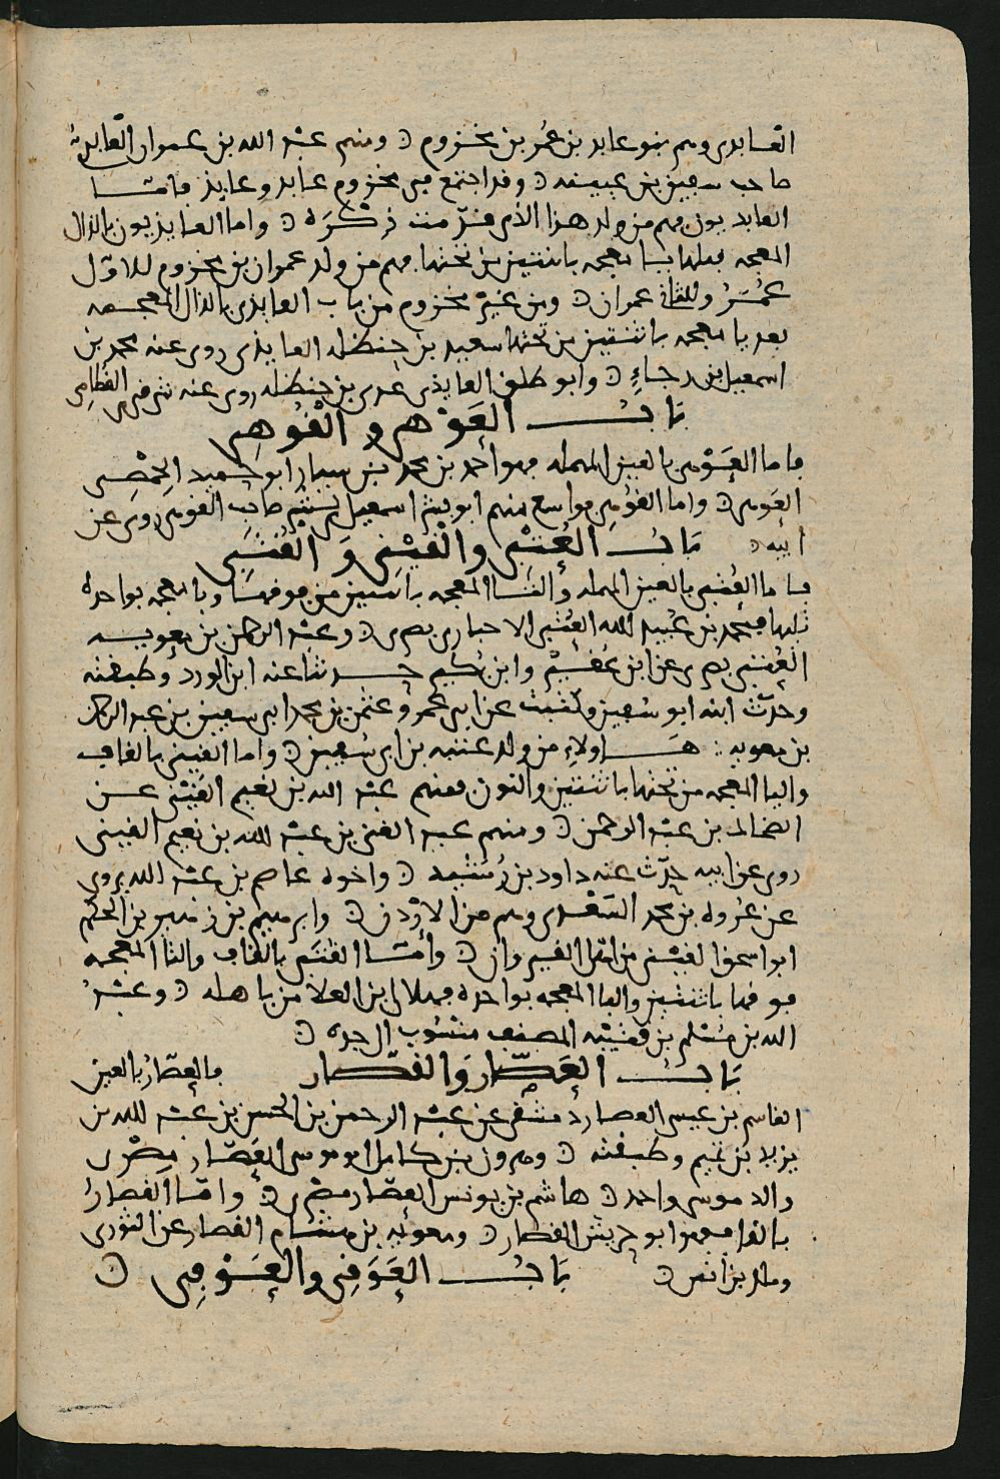 العابدي وهم بنو عابد بن عمر بن مخزوم ۞ ومنهم عبد الله بن عمران العابدي
صاحب سفين بن عيينه ۞ وقد اجتمع في مخزوم عابد وعايذ فاما
العابديون فهم من ولد هذا الذي قدمت ذكره ۞ واما العايذيون بالذال
المعجمه قبلها يا معجمه باثنتين من تحتها فهم من ولد عمران بن مخزوم للاول
عمر وللثاني عمران ۞ ومن غير مخزوم من باب العايذي بالذال المعجمه
بعد يا معجمه باثنتين من تحتها سعيد بن حنظله العايذي روى عنه محمد بن
اسمعيل بن رجاء ۞ وابو طلق العايذي عدي بن حنظله روى عنه شرقي القطامي
باب العَوْهي والْفُوهي
فاما العوهي بالعين المهمله فهو احمد بن محمد بن سيار ابو حميد الحمصي
العوهي ۞ واما الفوهي فواسع منهم ابو بشر اسمعيل صاحب الفوهي روى عن
ابيه ۞ باب العُتْبي والْقَيْني وَالْقُتَبي
فاما العتبي بالعين المهمله والتا المعجمه باثنتين من فوقها وبا معجمه بواحده
تليها فمحمد بن عبيد الله العتبي الاخباري بصري ۞ وعبد الرحمن بن معويه
العتبي بصري عن ابن عفير وابن بكير حدثنا عنه ابن الورد وطبقته
وحدث ابنه ابو سفين وكتبت عن ابي عمرو عثمن بن محمد ابي سفين بن عبد الرحمن
بن معويه : هاولاء من ولد عتبه بن ابي سفين ۞ واما القيني بالقاف
واليا المعجمه من تحتها باثنتين والنون فمنهم عبد الله بن نعيم القيني عن
الضحاك بن عبد الرحمن ۞ ومنهم عبد الغني بن عبد الله بن نعيم القيني
روى عن ابيه حدث عنه داود بن رُشَيْد ۞ واخوه عاصم بن عبد الله يروي
عن عروه بن محمد السَّعْدي وهم من الاردن ۞ وابرهيم بن زهير بن الحكم
ابو اسحق القيني من اهل القيروان ۞ وامّا القتبي بالقاف والتا المعجمه
فوقها باثنتين والبا المعجمه بواحده فهلال بن العلا من باهله ۞ وعبد
الله بن مسلم بن قتيبه المصنف منسوب الى جده ۞
باب العَصّار وَالقصّار فالعصّار بالعين
القاسم بن عيسى العصار دمشقي عن عبد الرحمن بن الحسن بن عبد الله بن
يزيد بن تميم وطبقته ۞ وهرون بن كامل ابو موسى العصّار مصري
والد موسى واحمد ۞ هاشم بن يونس العصّار مصري ۞ وامّا القصار
بالقاف فمنهم ابو حريش القصار ۞ ومعويه بن هشام القصار عن الثوري
ومالك بن انس ۞ باب العَوَقي والعَوْفي ۞